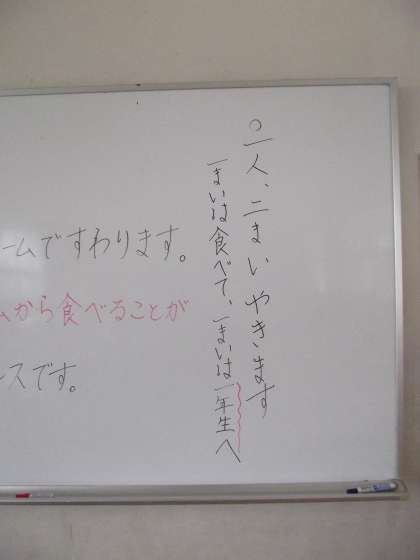 ○一人、二まいやきます
一まいは食べて、一まいは一年生へ
ームですわります。
から食べることが
ースです。